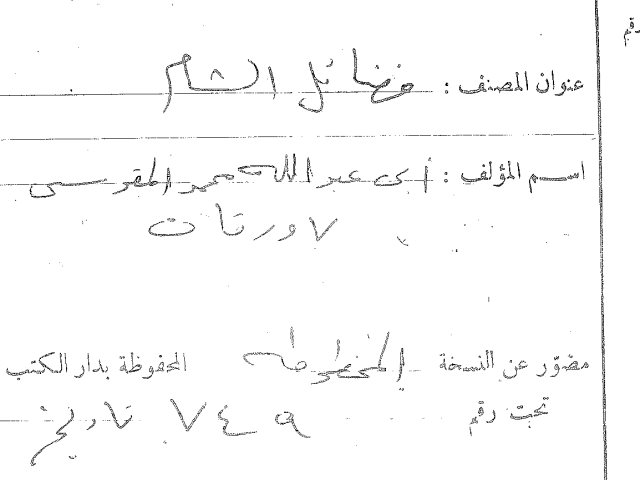 رقم
عنوان المصنف : فضائل الشام
اسم المؤلف : أبى عبد الله محمد المقدسى
٧ ورقات
مصور عن النسخة المخطوطه المحفوظة بدار الكتب
تحت رقم ٧٤٩ تاريخ